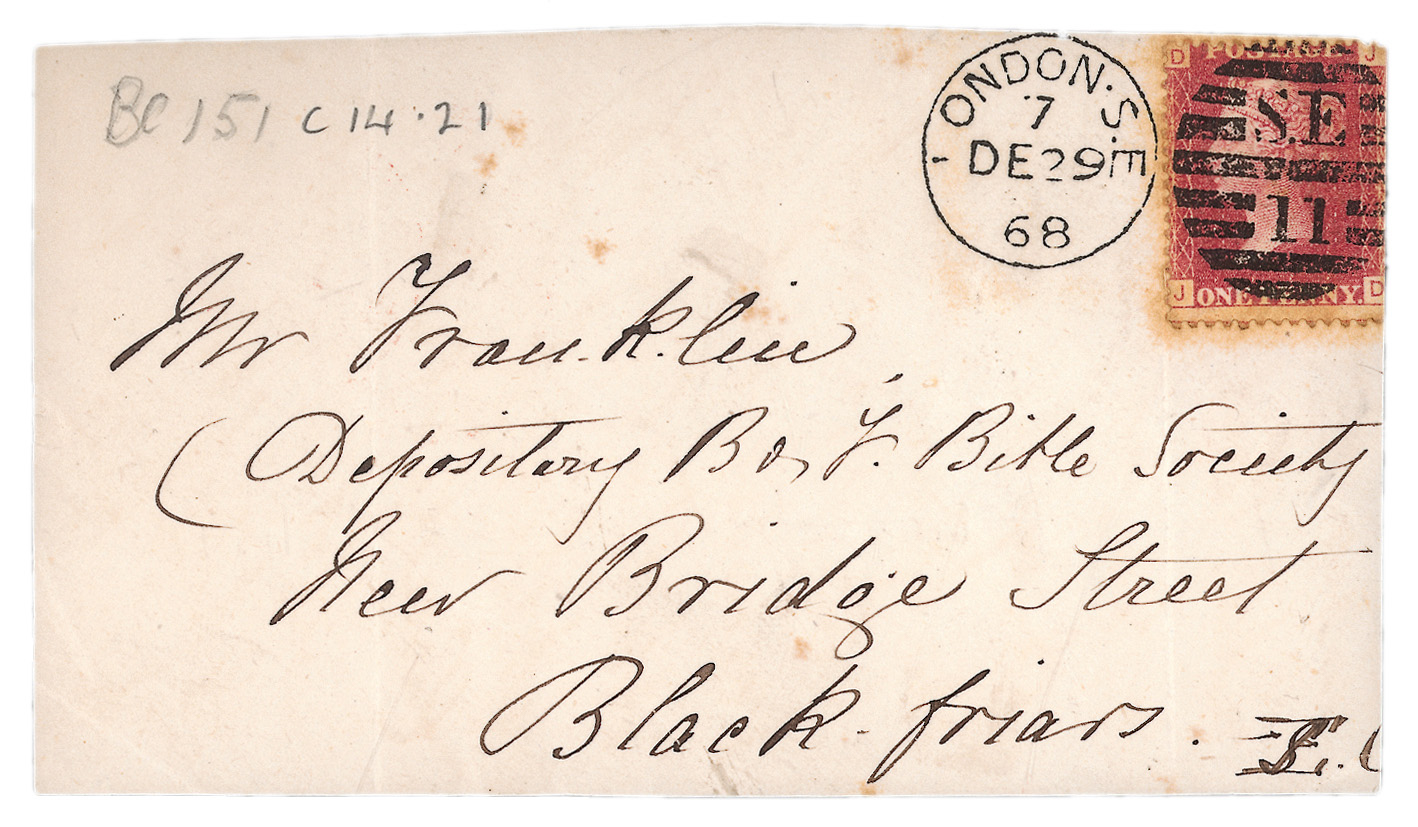 Be 151 c 14.21
LONDON.S.E
7
DE 29
68
D POSTAGE J
S.E
11
J ONE PENNY. D
Mr Franklin,
(Depository Bd, F. Bible Society
New Bridge Street
Black-friars. E. C